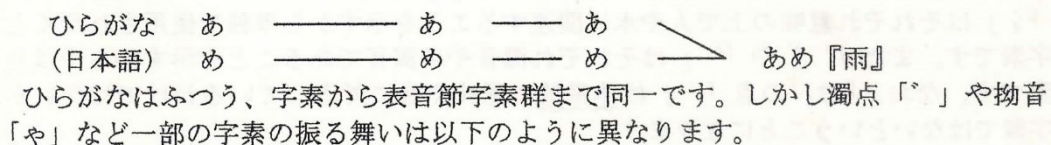 ひらがな あ あ あ
(日本語) め め め あめ『雨』
ひらがなはふつう、字素から表音節字素群まで同一です。しかし濁点「゛」や拗音
「ゃ」など一部の字素の振る舞いは以下のように異なります。